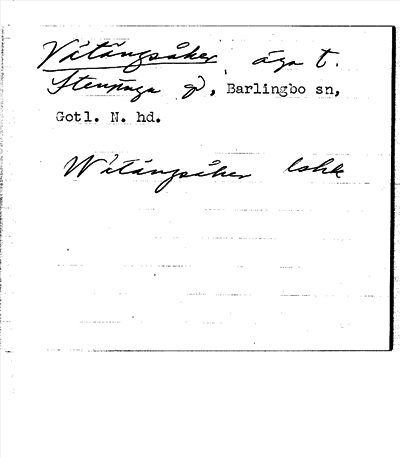 Vitängsåker, äga t.
Stenstuga gd, Barlingbo sn,
Gotl. N. hd.
Witängsåker lshk